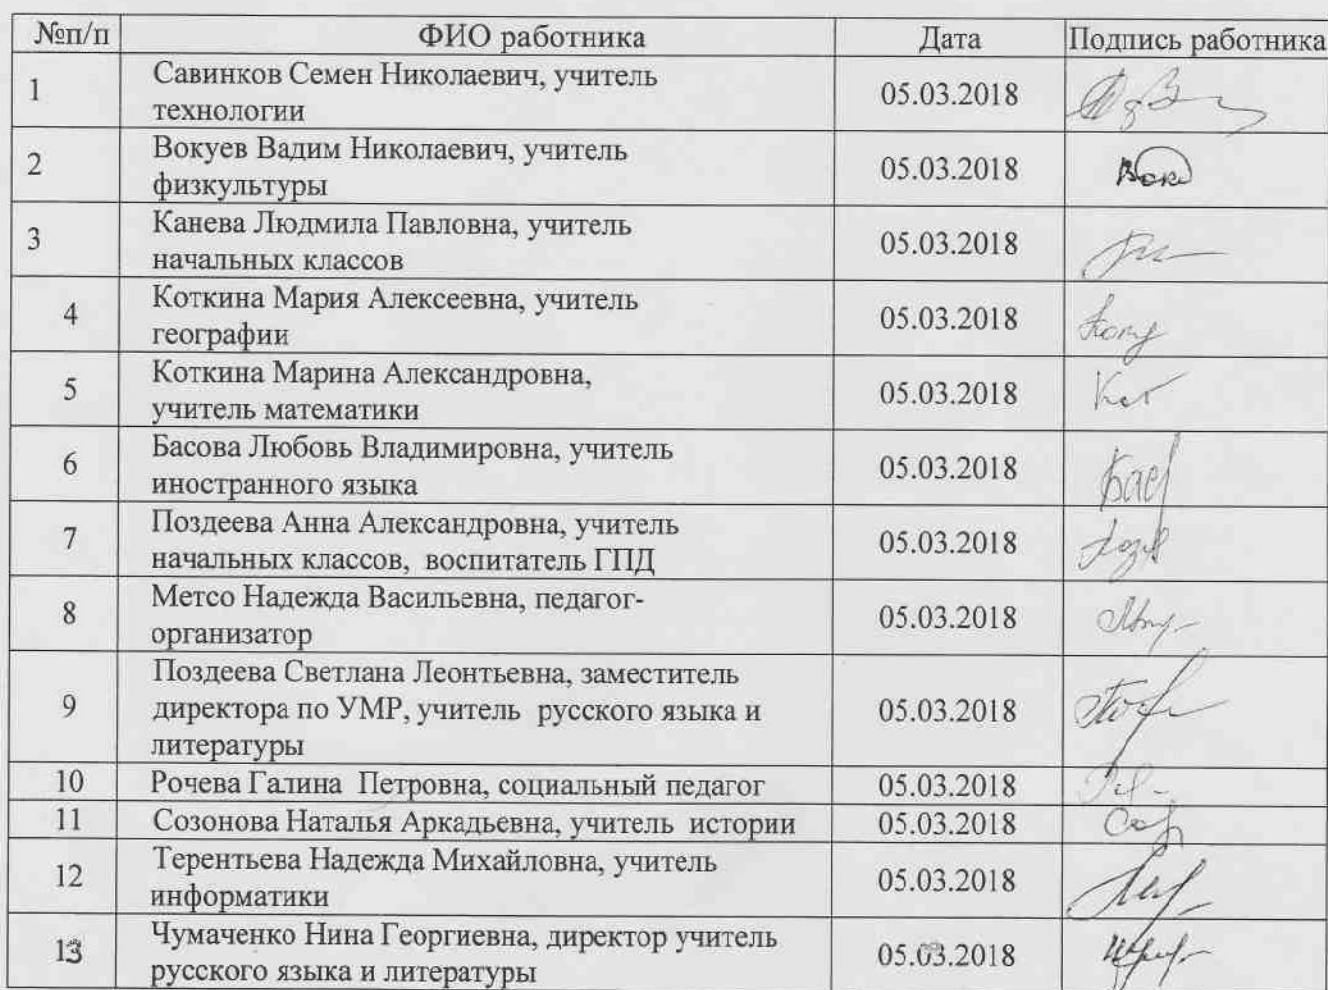 №п/п ФИО работника Дата Подпись работника
1 Савинков Семен Николаевич, учитель
технологии 05.03.2018
2 Вокуев Вадим Николаевич, учитель
физкультуры 05.03.2018
3 Канева Людмила Павловна, учитель
начальных классов 05.03.2018
4 Коткина Мария Алексеевна, учитель
географии 05.03.2018
5 Коткина Марина Александровна,
учитель математики 05.03.2018
6 Басова Любовь Владимировна, учитель
иностранного языка 05.03.2018
7 Поздеева Анна Александровна, учитель
начальных классов, воспитатель ГПД 05.03.2018
8 Метсо Надежда Васильевна, педагог-
организатор 05.03.2018
9 Поздеева Светлана Леонтьевна, заместитель
директора по УМР, учитель русского языка и
литературы 05.03.2018
10 Рочева Галина Петровна, социальный педагог 05.03.2018
11 Созонова Наталья Аркадьевна, учитель истории 05.03.2018
12 Терентьева Надежда Михайловна, учитель
информатики 05.03.2018
13 Чумаченко Нина Георгиевна, директор учитель
русского языка и литературы 05.03.2018